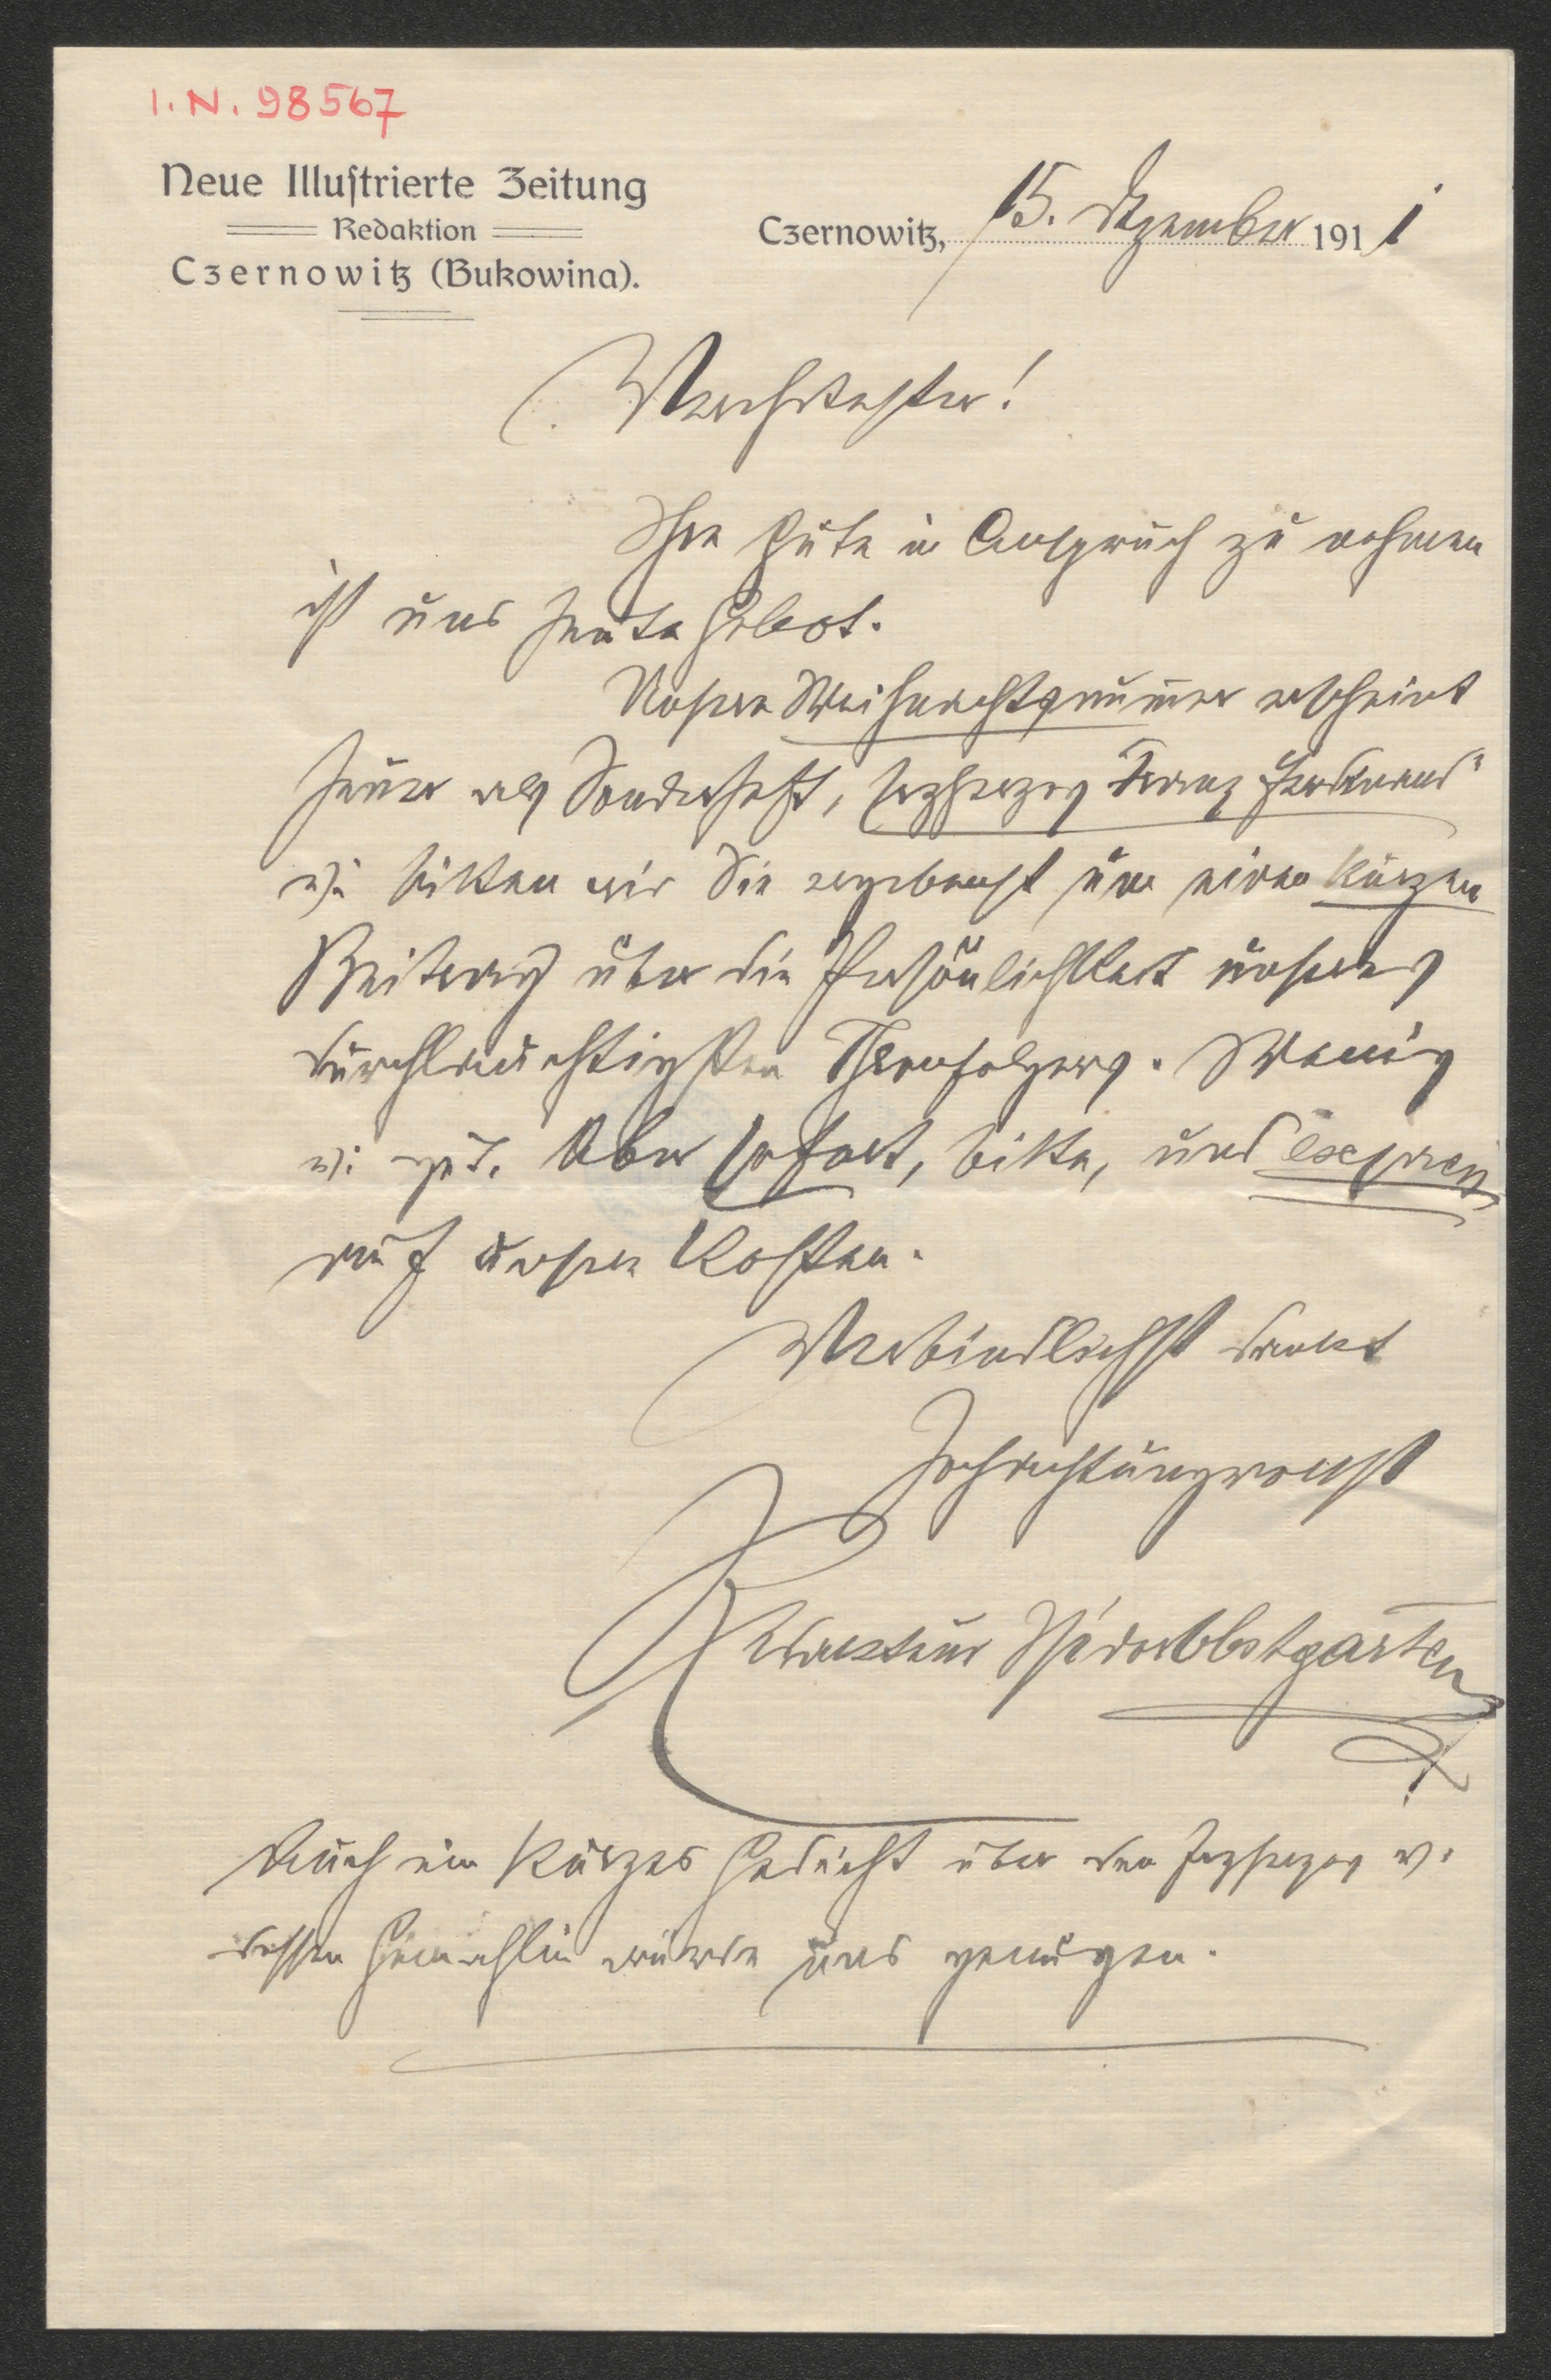 I. N. 98567
Neue Illustrierte Zeitung
Redaktion
Czernowitz (Bukowina).
Czernowitz, 15. Dezember 1911
Verehrtester!
Ihre Güte in Anspruch zu nehmen
ist uns heute Gebot.
Unsere Weihnachtsnummer erscheint
heuer als Sonderheft, Erzherzog Franz Ferdinand"
u. bitten wir Sie ergebenst um einen kurzen
Beitrag über die Persönlichkeit unseres
durchlauchtigsten Thronfolgers. Wenig
u. gut. Aber sofort, bitte, und express,
auf unsere Kosten.
Verbindlichst dankt
Hochachtungsvollst
Redakteur
Auch ein kurzes Gedicht über den Erzherzog u.
dessen Gemahlin würde uns genügen.